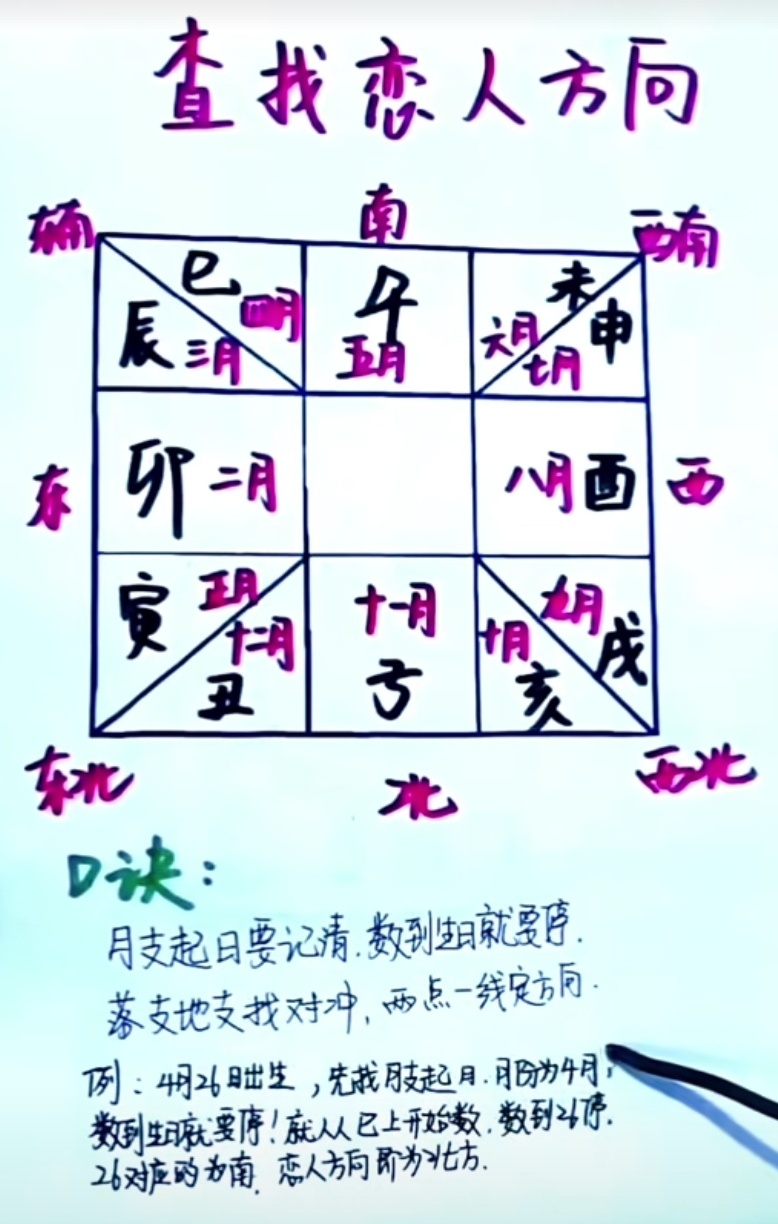 查找恋人方向
东南 南 西南
巳 四月 辰 三月
午 五月
未 六月 申 七月
东 卯 二月
八月 酉 西
寅 正月 十二月 丑
十一月 子
九月 戌 十月 亥
东北 北 西北
口诀:
月支起日要记清.数到生日就要停.
落支地支找对冲,两点一线定方向.
例:4月26日出生,先找月支起日.月份为4月,
数到生日就要停!就从巳上开始数.数到26停.
26对应的为南.恋人方向即为北方.